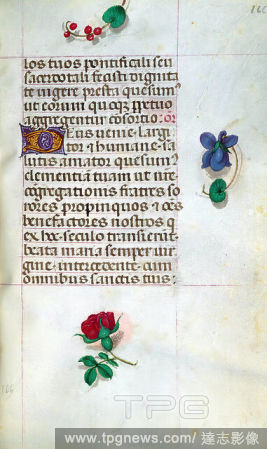 160
los tuos pontificali seu
sacerdotali fecisti dignita
te vigere presta quesum9
ut eorum quoqz ppetuo
aggregentur cõsortio: or
Deus venie largi
tor & humane sa
lutis amator quesum9
clementiã tuam ut nr̃e
cõgregationis fratres so
rores propinquos & oẽs
benefactores nostros q
ex hoc seculo transierũt
beata maria semper vir
gine intercedente cum
omnibus sanctis tuis:
166
TPG
www.tpgnews.com / 達志影像